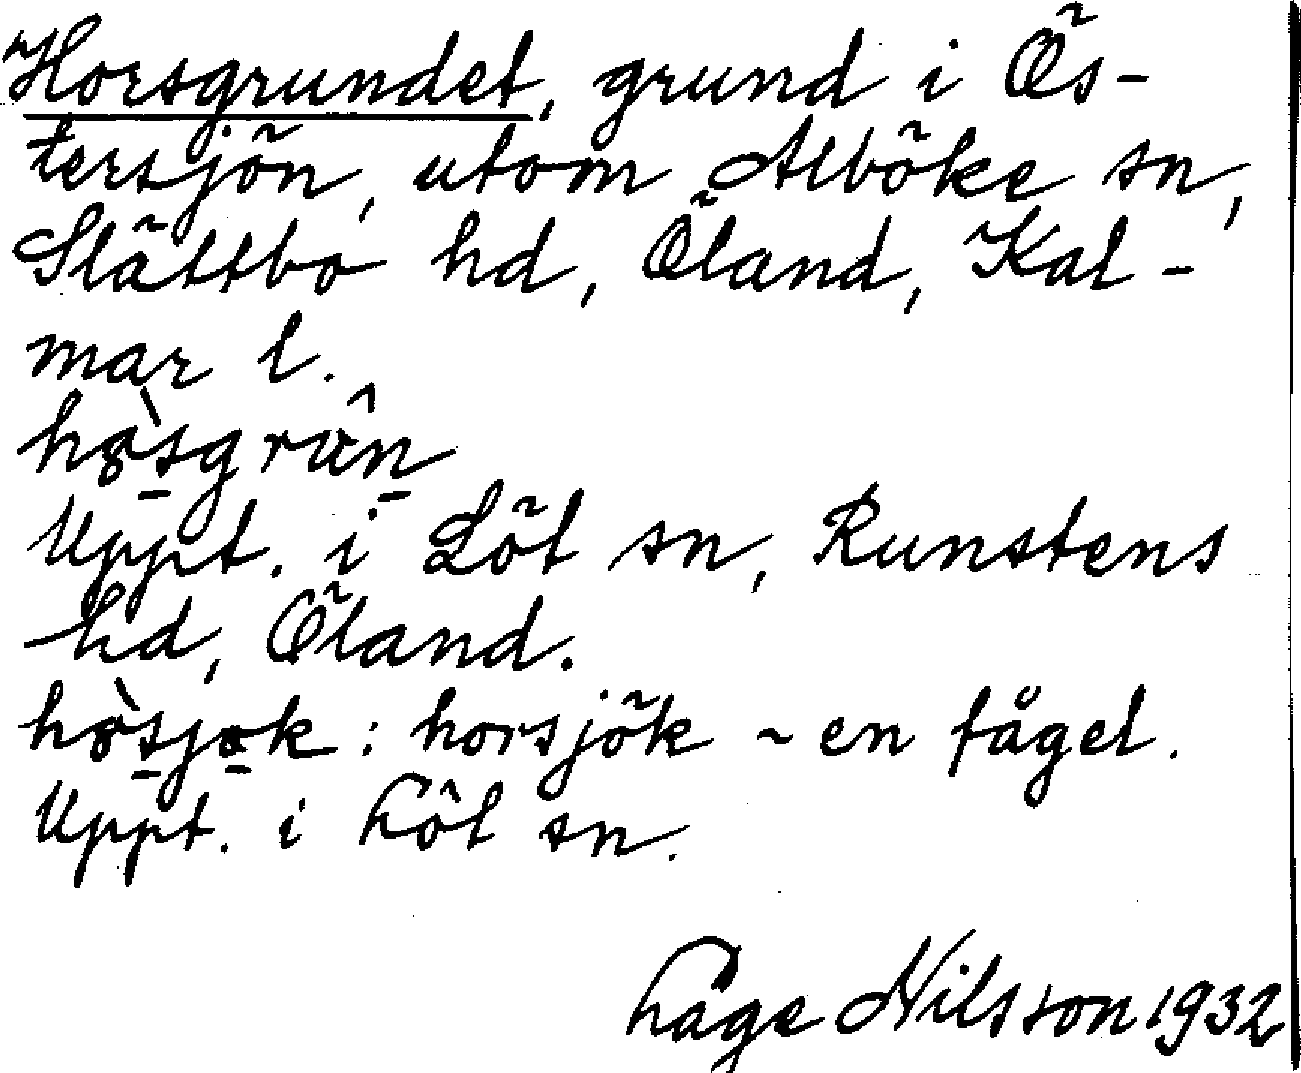 Horsgrundet, grund i Ös-
tersjön, utom Alböke sn,
Slättbo hd, Öland, Kal-
mar l.
Uppt. i Löt sn, Runstens
hd, Öland.
: horsjök ~ en fågel.
Uppt. i Löt sn.
Låge Nilsson 1932